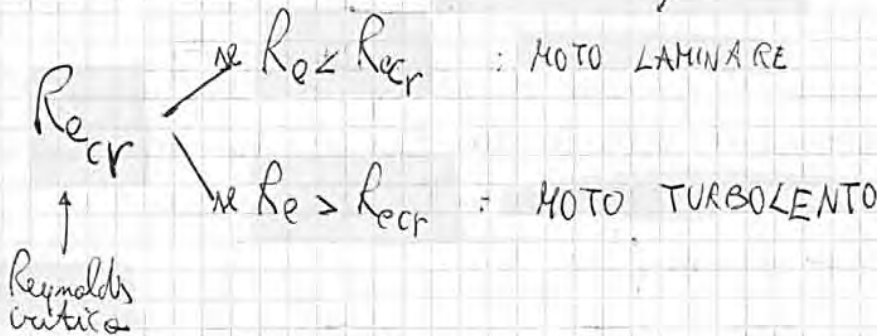 se Re < Recr : MOTO LAMINARE
Recr
se Re > Recr : MOTO TURBOLENTO
Reynolds
critico